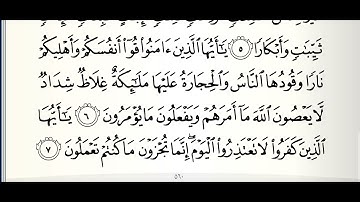 ثَيِّبَٰتٍ وَأَبْكَارًا ٥ يَٰٓأَيُّهَا ٱلَّذِينَ ءَامَنُوا۟ قُوٓا۟ أَنفُسَكُمْ وَأَهْلِيكُمْ
نَارًا وَقُودُهَا ٱلنَّاسُ وَٱلْحِجَارَةُ عَلَيْهَا مَلَٰٓئِكَةٌ غِلَاظٌ شِدَادٌ
لَّا يَعْصُونَ ٱللَّهَ مَآ أَمَرَهُمْ وَيَفْعَلُونَ مَا يُؤْمَرُونَ ٦ يَٰٓأَيُّهَا
ٱلَّذِينَ كَفَرُوا۟ لَا تَعْتَذِرُوا۟ ٱلْيَوْمَ إِنَّمَا تُجْزَوْنَ مَا كُنتُمْ تَعْمَلُونَ ٧
٥٦٠